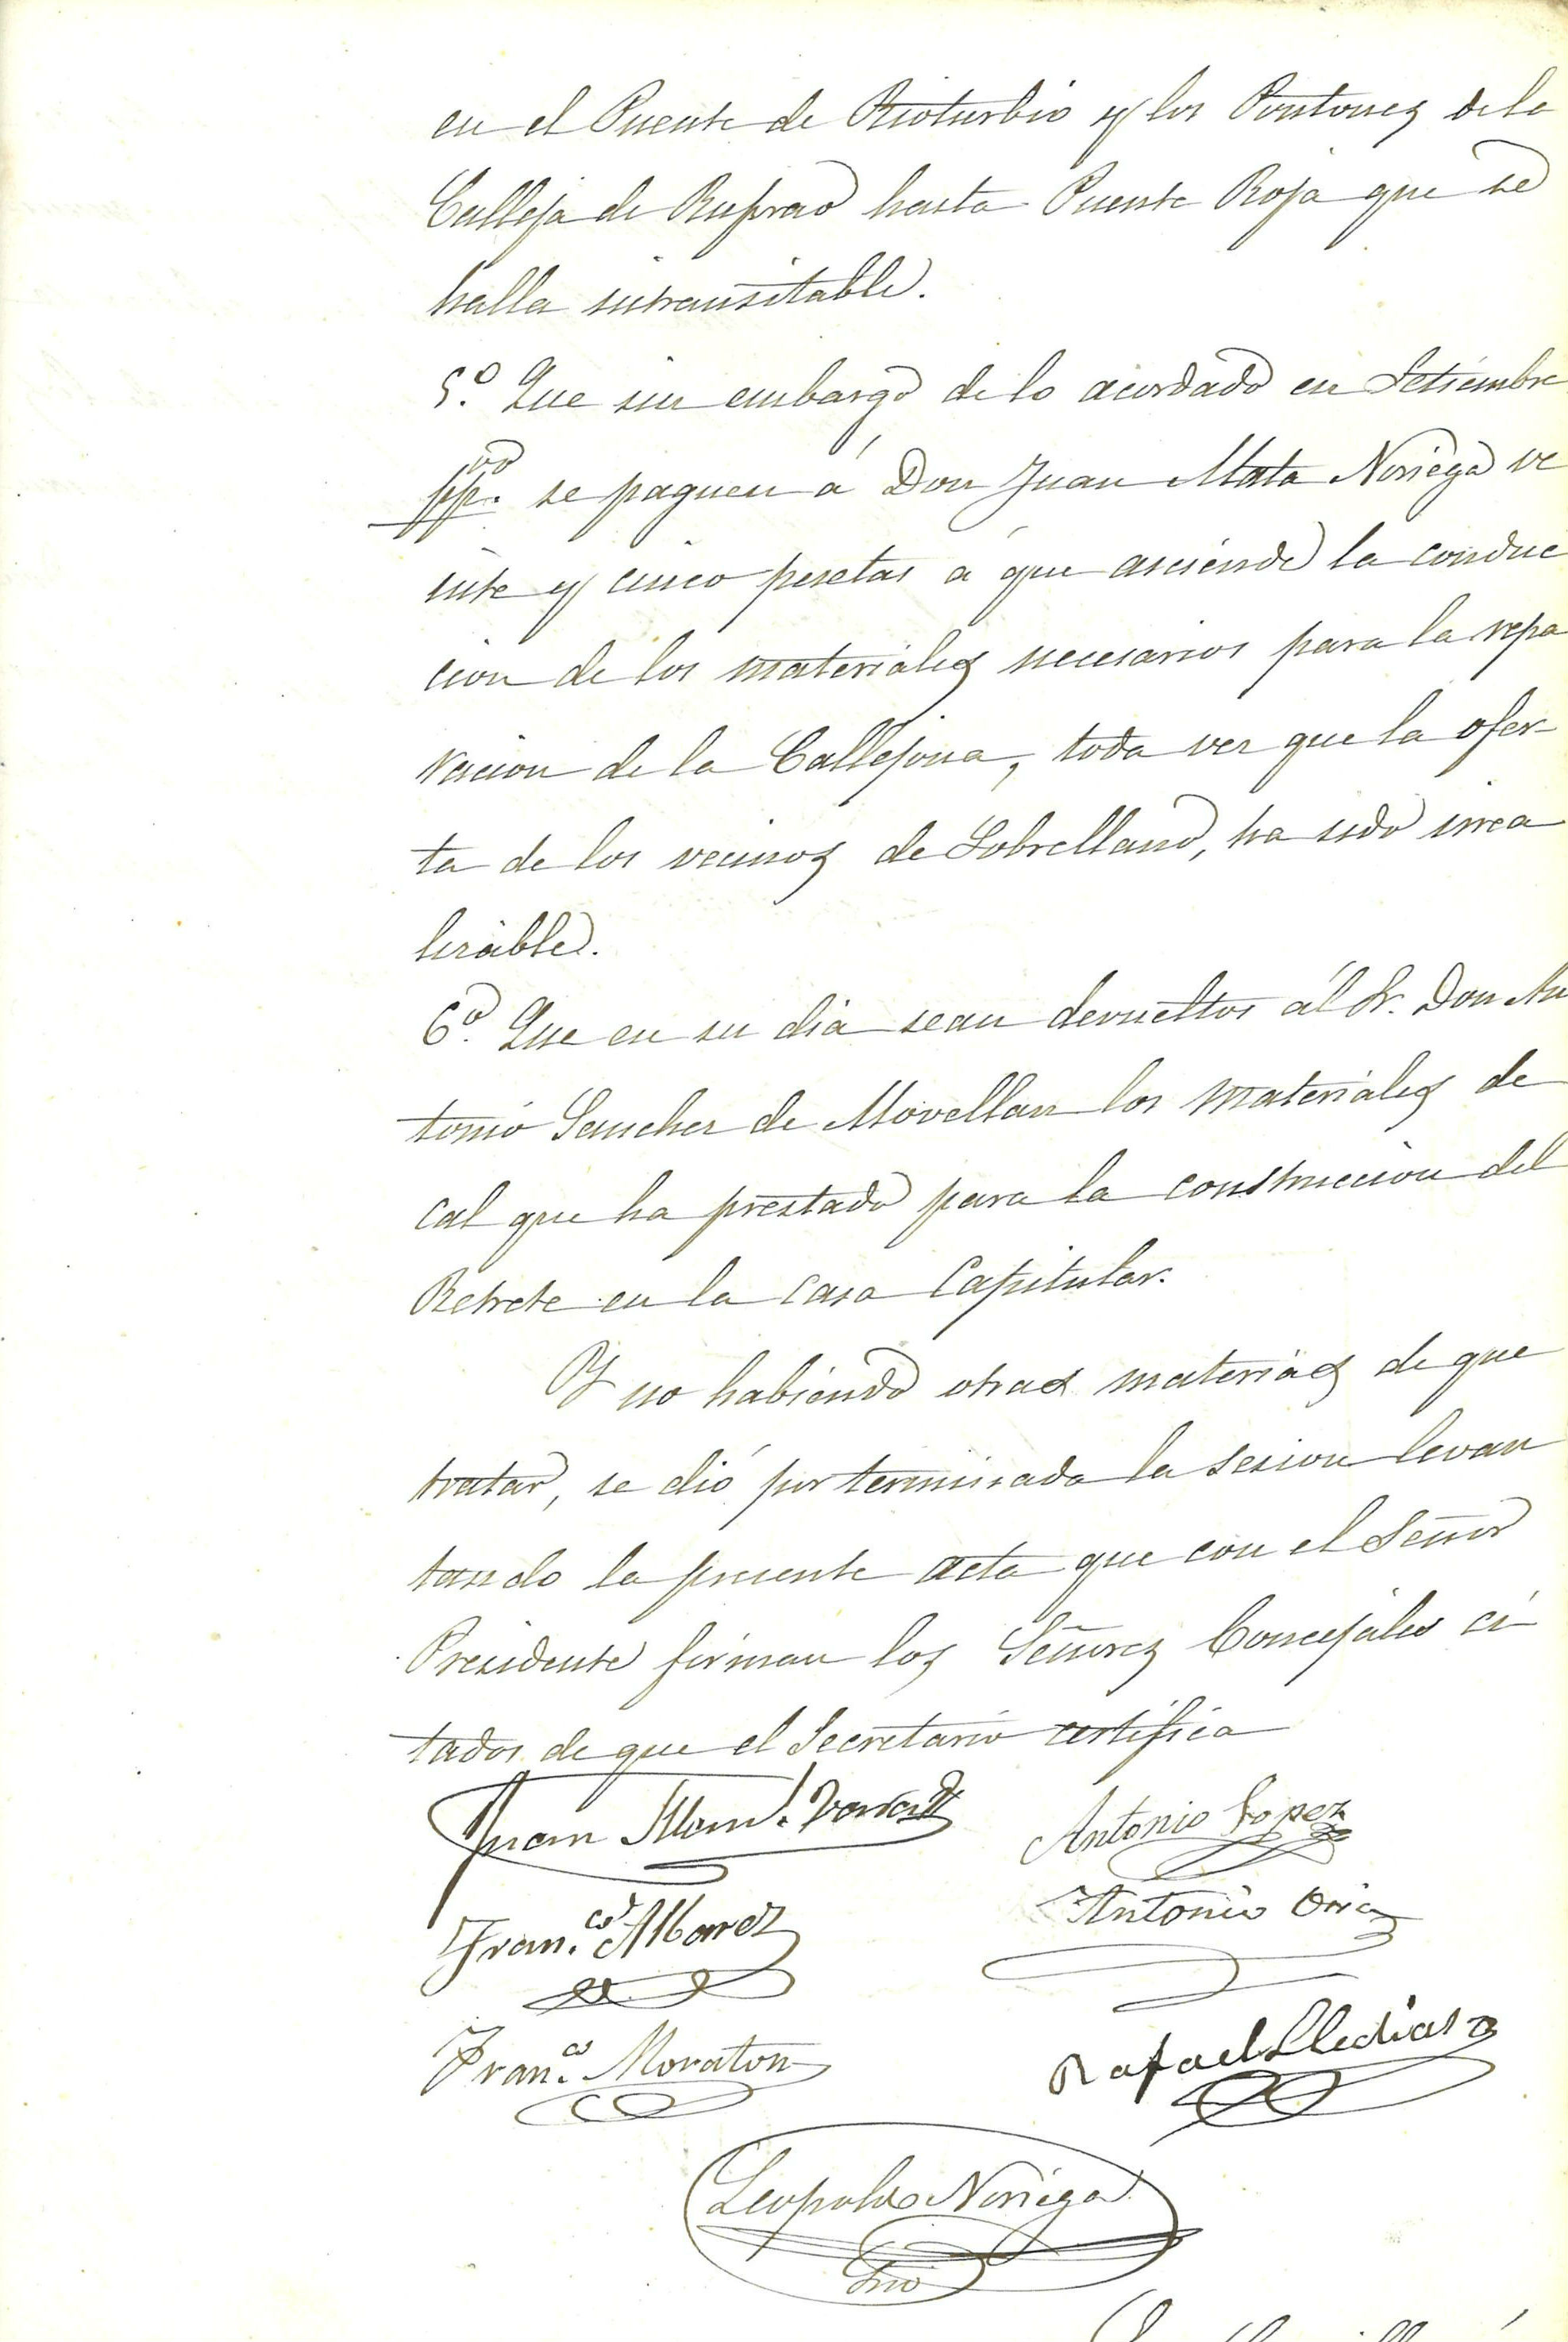 en el Puente de Rioturbio y los Pontones de la
Calleja de Ruprao hasta Puente Roja que se
halla intransitable.
5.º Que sin embargo de lo acordado en Setiembre
pp.do se paguen á Don Juan Mata Noriega ve
inte y cinco pesetas á que asciende la conduc
cion de los materiales necesarios para la repa
racion de la Callejona, toda vez que la ofer-
ta de los vecinos de Sobrellano, ha sido irrea
lizable.
6.º Que en su dia sean devueltos al Sr. Don An
tonio Sanchez de Movellan los materiales de
cal que ha prestado para la construccion del
Retrete en la Casa Capitular.
Y no habiendo otras materias de que
tratar, se dió por terminada la sesion levan
tando la presente acta que con el Señor
Presidente firman los Señores Concejales ci
tados de que el Secretario certifica
Juan
Antonio Lopez
Fran.co Alvarez
Antonio Oria
Fran.co Moraton
Rafael Lledias
Leopoldo Noriega
Srio